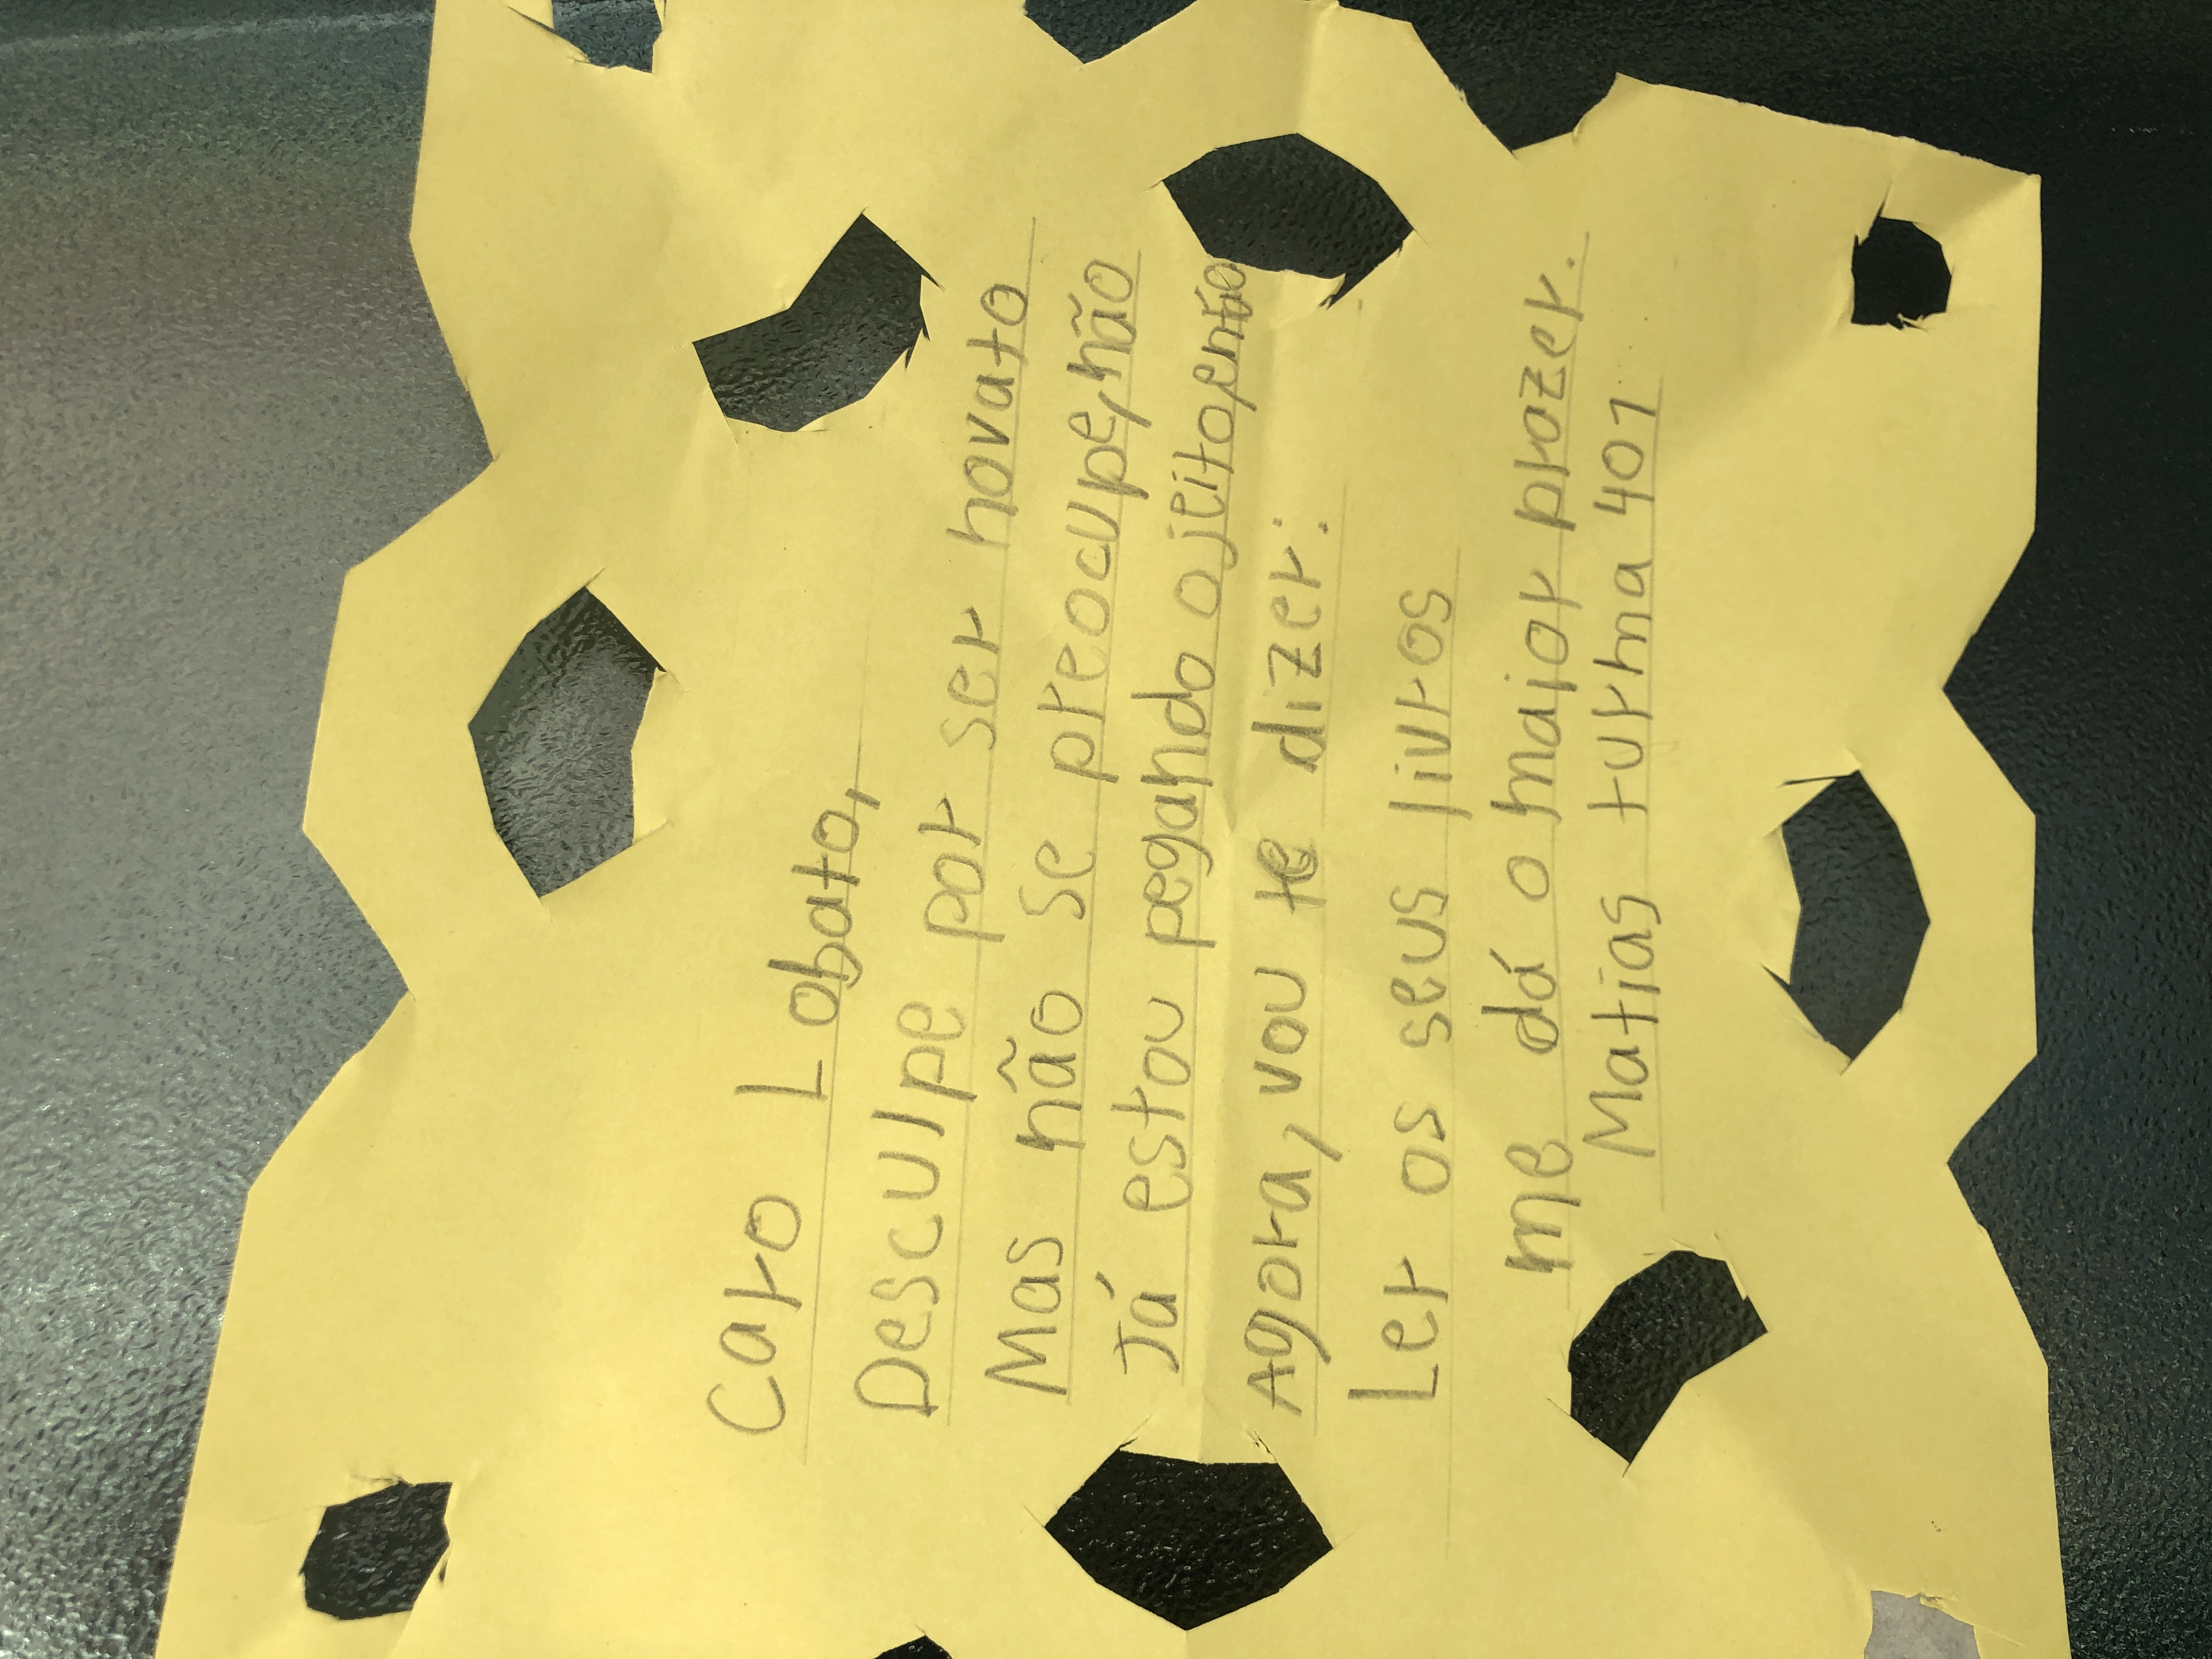 Caro Lobato,
Desculpe por ser novato
Mas não se preocupe, não
Já estou pegando o jeito, então
Agora, vou te dizer:
Ler os seus livros
me dá o maior prazer.
Matias turma 401